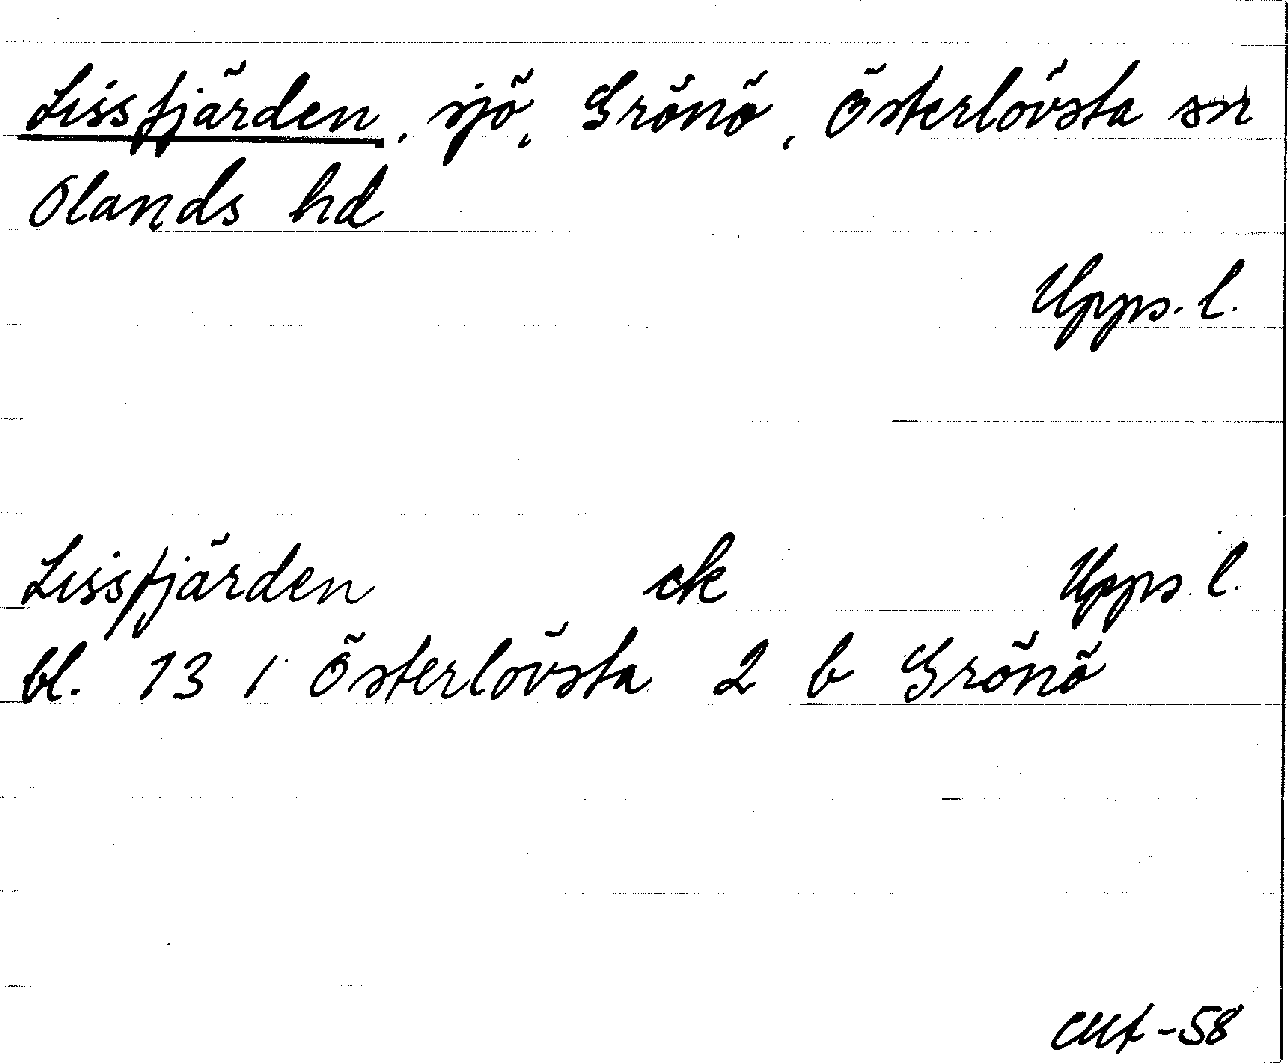 Lissfjärden, sjö, Grönö, Österlövsta sn
Olands hd
Upps. l.
Lissfjärden ek Upps l.
bl. 13 i Österlövsta 2 b Grönö
-58